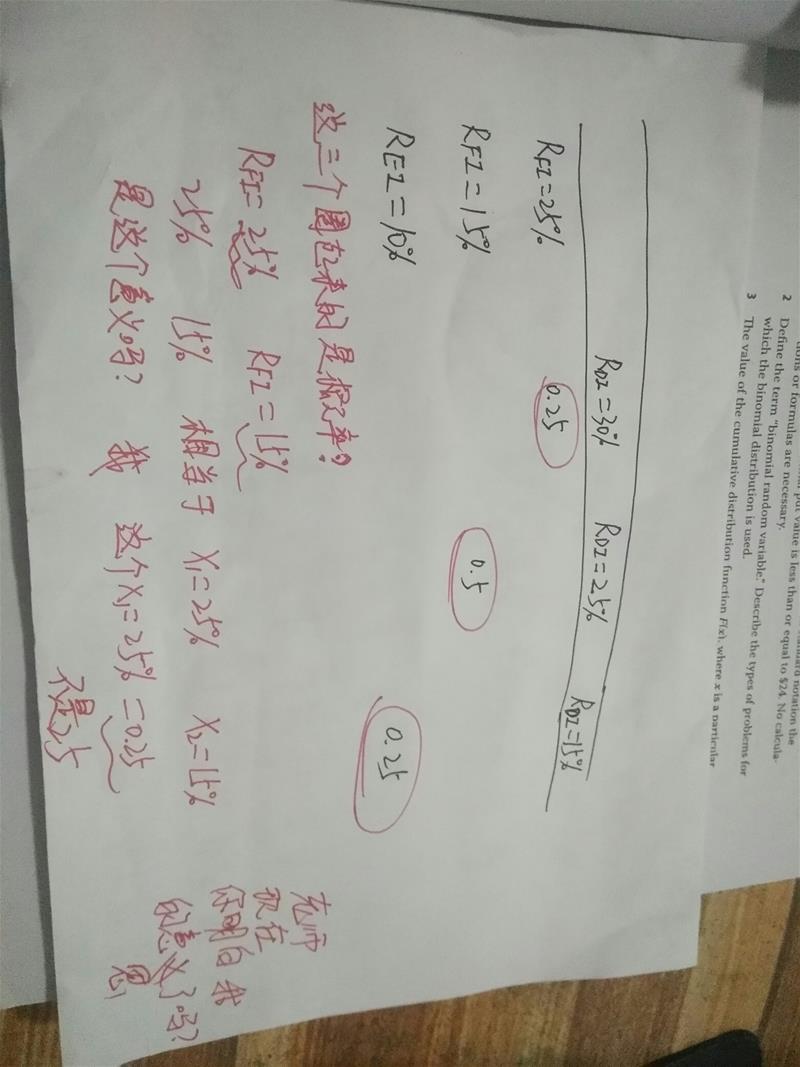 standard notation the
put value is less than or equal to $24. No calcula-
tions or formulas are necessary.
2 Define the term "binomial random variable." Describe the types of problems for
which the binomial distribution is used.
3 The value of the cumulative distribution function F(x), where x is a particular
RDI=30% RDI=25% RDI=15%
RFI=25% 0.25
RFI=15% 0.5
REI=10% 0.25
这三个圈起来的是概率?
RFI=25% RFI=15%
25% 15% 相当于 X₁=25% X₂=15%
是这个意义吗? 我 这个X₁=25%=0.25
不是25
老师
现在
你明白我
的意思了吗?